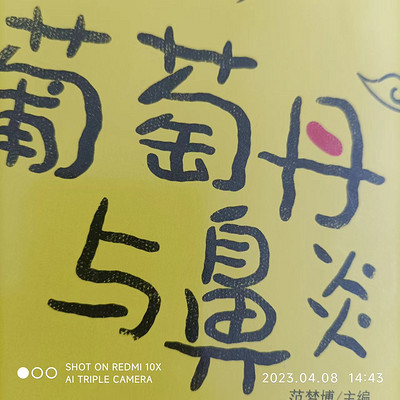 葡萄丹
与鼻炎
SHOT ON REDMI 10X
AI TRIPLE CAMERA
2023.04.08 14:43
范梦博/主编